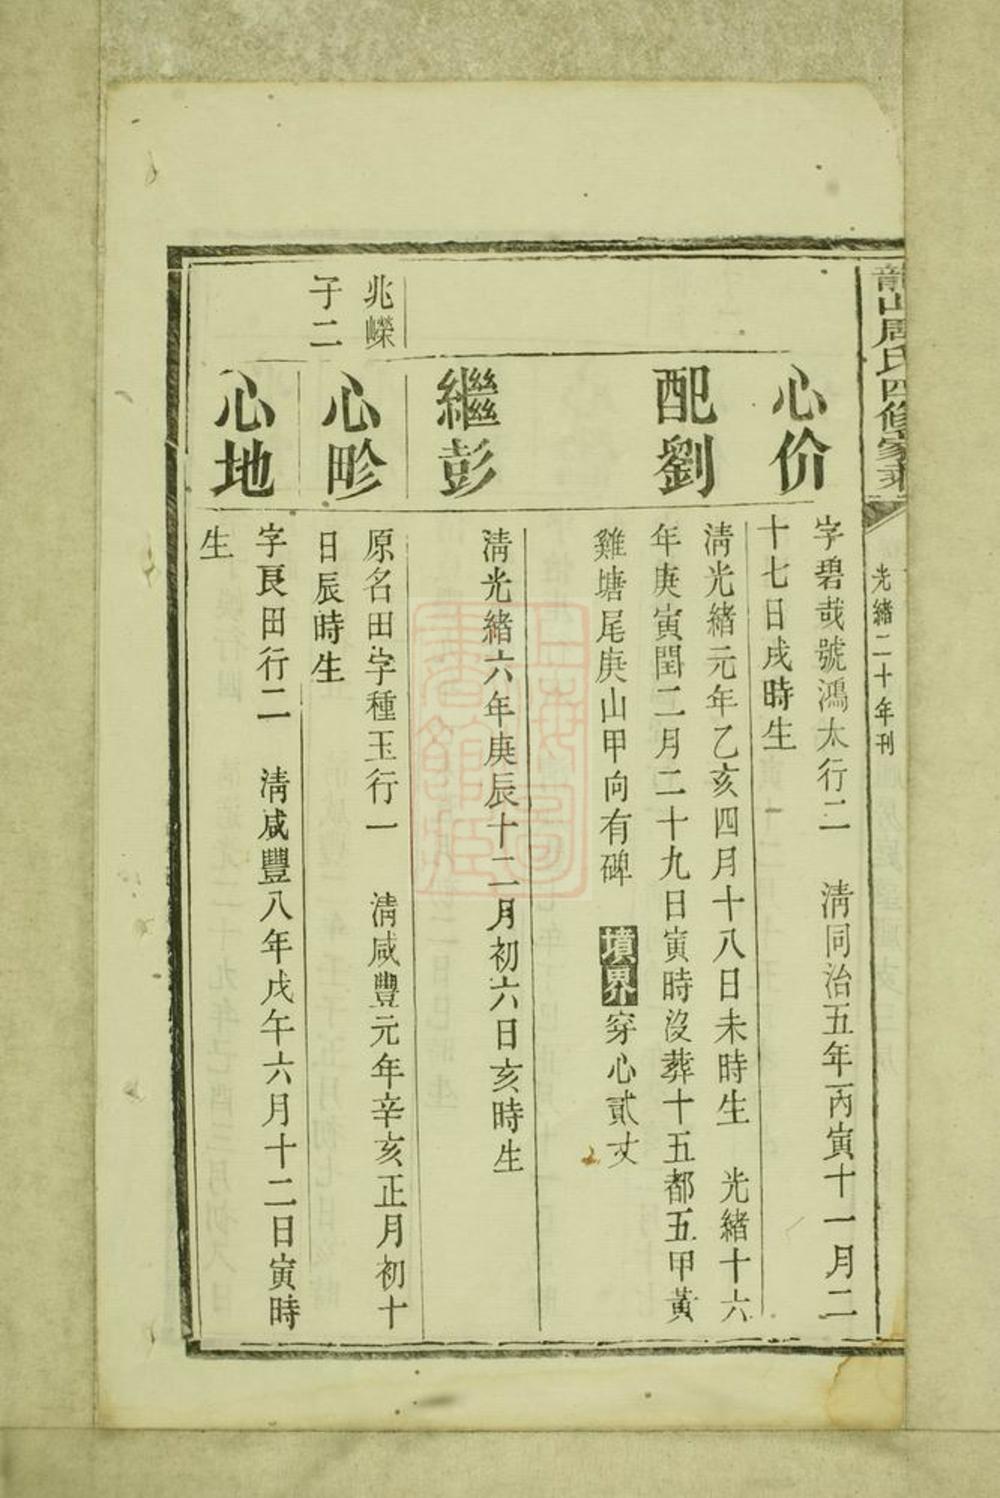 龍山周氏四修家乘
光緒二十年刊
心价
字碧哉號鴻太行二 淸同治五年丙寅十一月二
十七日戌時生
配劉
淸光緒元年乙亥四月十八日未時生 光緒十六
年庚寅閏二月二十九日寅時沒葬十五都五甲黃
雞塘尾庚山甲向有碑 墳界穿心貳丈
繼彭
淸光緒六年庚辰十二月初六日亥時生
兆嶸
子二
心畛
原名田字種玉行一 淸咸豐元年辛亥正月初十
日辰時生
心地
字良田行二 淸咸豐八年戊午六月十二日寅時
生